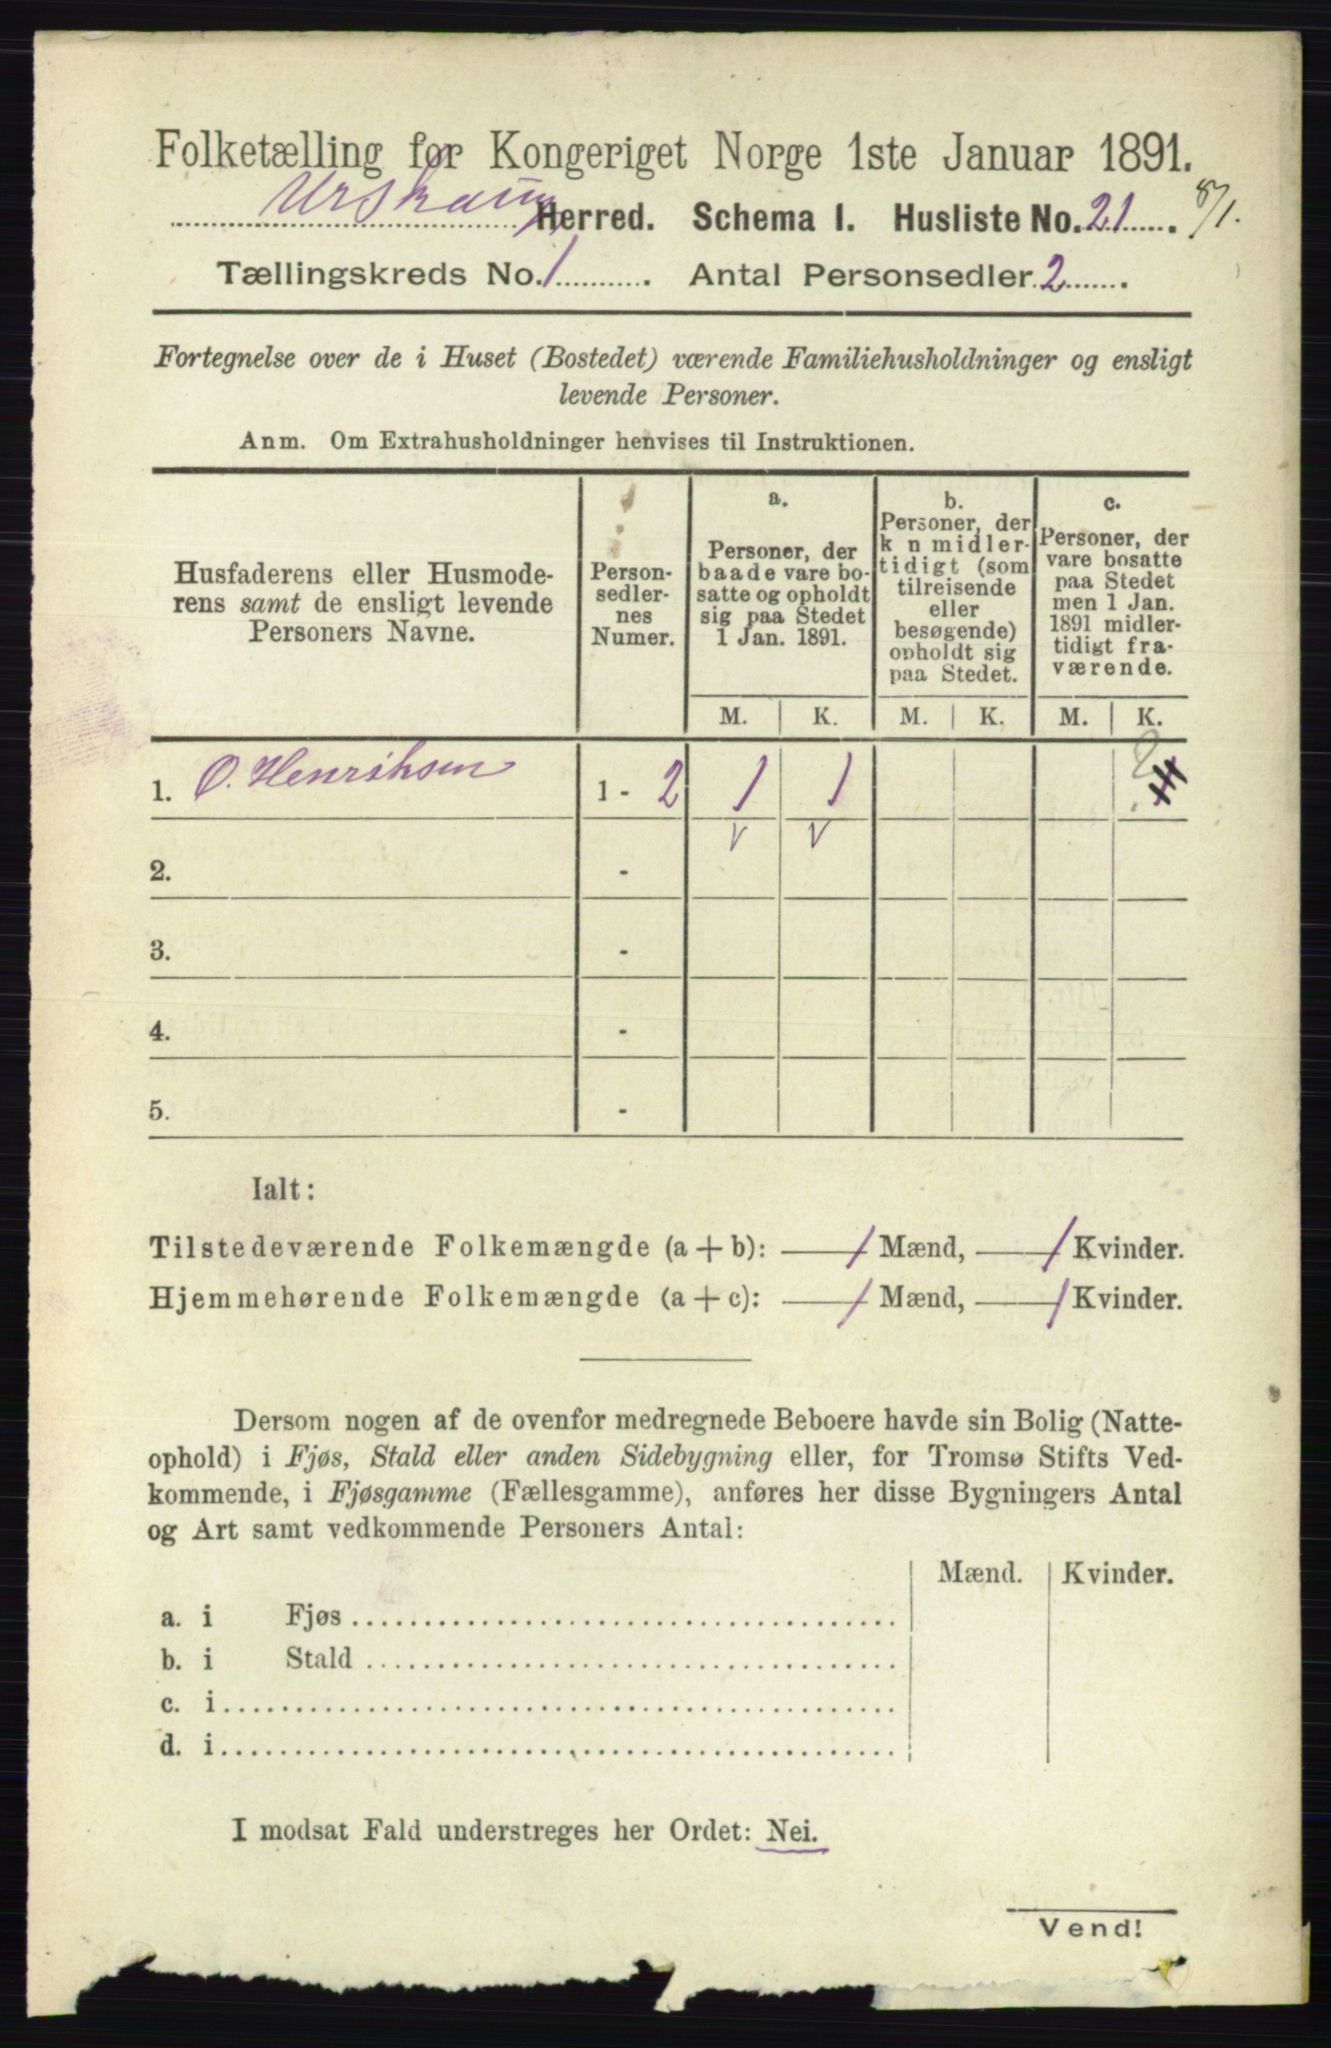 Folketælling for Kongeriget Norge 1ste Januar 1891.
Urskoug Herred. Schema I. Husliste No. 21. 8/1.
Tællingskreds No. 1. Antal Personsedler 2.
Fortegnelse over de i Huset (Bostedet) værende Familiehusholdninger og ensligt
levende Personer.
Anm. Om Extrahusholdninger henvises til Instruktionen.
Husfaderens eller Husmode-
rens samt de ensligt levende
Personers Navne.
Person-
sedler-
nes
Numer.
a.
Personer, der
baade vare bo-
satte og opholdt
sig paa Stedet
1 Jan. 1891.
b.
Personer, der
k n midler-
tidigt (som
tilreisende
eller
besøgende)
opholdt sig
paa Stedet.
c.
Personer, der
vare bosatte
paa Stedet
men 1 Jan.
1891 midler-
tidigt fra-
værende.
M. K. M. K. M. K.
1. O. Henriksen 1 - 2 1 1
v v
2. -
3. -
4. -
5. -
Ialt:
Tilstedeværende Folkemængde (a + b): 1 Mænd, 1 Kvinder.
Hjemmehørende Folkemængde (a + c): 1 Mænd, 1 Kvinder.
Dersom nogen af de ovenfor medregnede Beboere havde sin Bolig (Natte-
ophold) i Fjøs, Stald eller anden Sidebygning eller, for Tromsø Stifts Ved-
kommende, i Fjøsgamme (Fællesgamme), anføres her disse Bygningers Antal
og Art samt vedkommende Personers Antal:
Mænd. Kvinder.
a. i Fjøs
b. i Stald
c. i
d. i
I modsat Fald understreges her Ordet: Nei.
Vend!